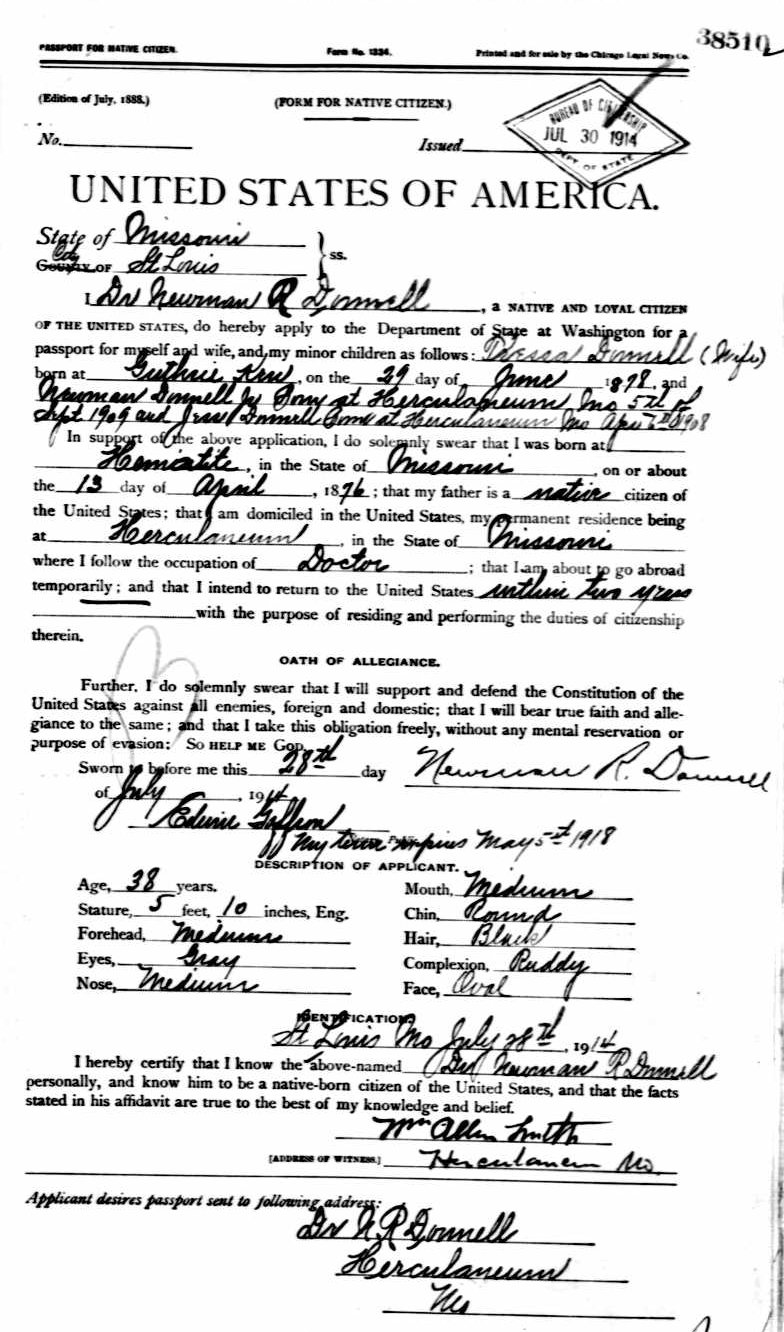 38510
PASSPORT FOR NATIVE CITIZEN. Form No. 1334. Printed and for sale by the Chicago Legal News Co.
(Edition of July, 1888.) (FORM FOR NATIVE CITIZEN.)
BUREAU OF CITIZENSHIP
JUL 30 1914
DEPT OF STATE
No. Issued
UNITED STATES OF AMERICA.
State of Missouri
City
COUNTY OF St Louis } ss.
I Dr Newman R Donnell, a NATIVE AND LOYAL CITIZEN
OF THE UNITED STATES, do hereby apply to the Department of State at Washington for a
passport for myself and wife, and my minor children as follows: Tressa Donnell (Wife)
born at Guthrie, on the 29 day of June 1878, and
Newman Donnell Jr Born at Herculaneum Mo 5th of
Sept 1909 and Jess Donnell Born at Herculaneum Mo April 6th 1908
In support of the above application, I do solemnly swear that I was born at
Hematite, in the State of Missouri, on or about
the 13 day of April, 1876; that my father is a native citizen of
the United States; that I am domiciled in the United States, my permanent residence being
at Herculaneum, in the State of Missouri
where I follow the occupation of Doctor; that I am about to go abroad
temporarily; and that I intend to return to the United States within two years
with the purpose of residing and performing the duties of citizenship
therein.
OATH OF ALLEGIANCE.
Further, I do solemnly swear that I will support and defend the Constitution of the
United States against all enemies, foreign and domestic; that I will bear true faith and alle-
giance to the same; and that I take this obligation freely, without any mental reservation or
purpose of evasion: SO HELP ME GOD.
Sworn to before me this 28th day Newman R. Donnell
of July, 1914
My term expires May 5th 1918
DESCRIPTION OF APPLICANT.
Age, 38 years. Mouth, Medium
Stature, 5 feet, 10 inches, Eng. Chin, Round
Forehead, Medium Hair, Black
Eyes, Gray Complexion, Ruddy
Nose, Medium Face, Oval
IDENTIFICATION.
St Louis Mo July 28th, 1914
I hereby certify that I know the above-named Dr Newman R Donnell
personally, and know him to be a native-born citizen of the United States, and that the facts
stated in his affidavit are true to the best of my knowledge and belief.
Wm Allen Smith
[ADDRESS OF WITNESS.] Herculaneum Mo.
Applicant desires passport sent to following address:
Dr N. R Donnell
Herculaneum
Mo